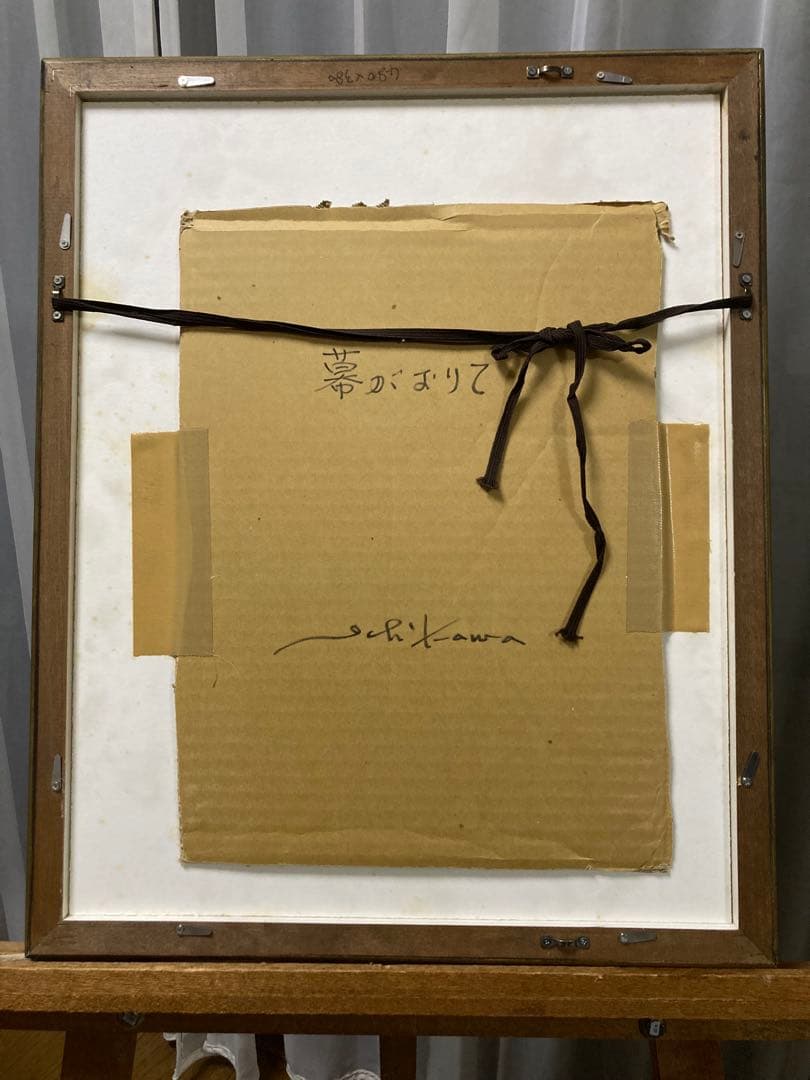 480×380
幕がおりて
Ichikawa